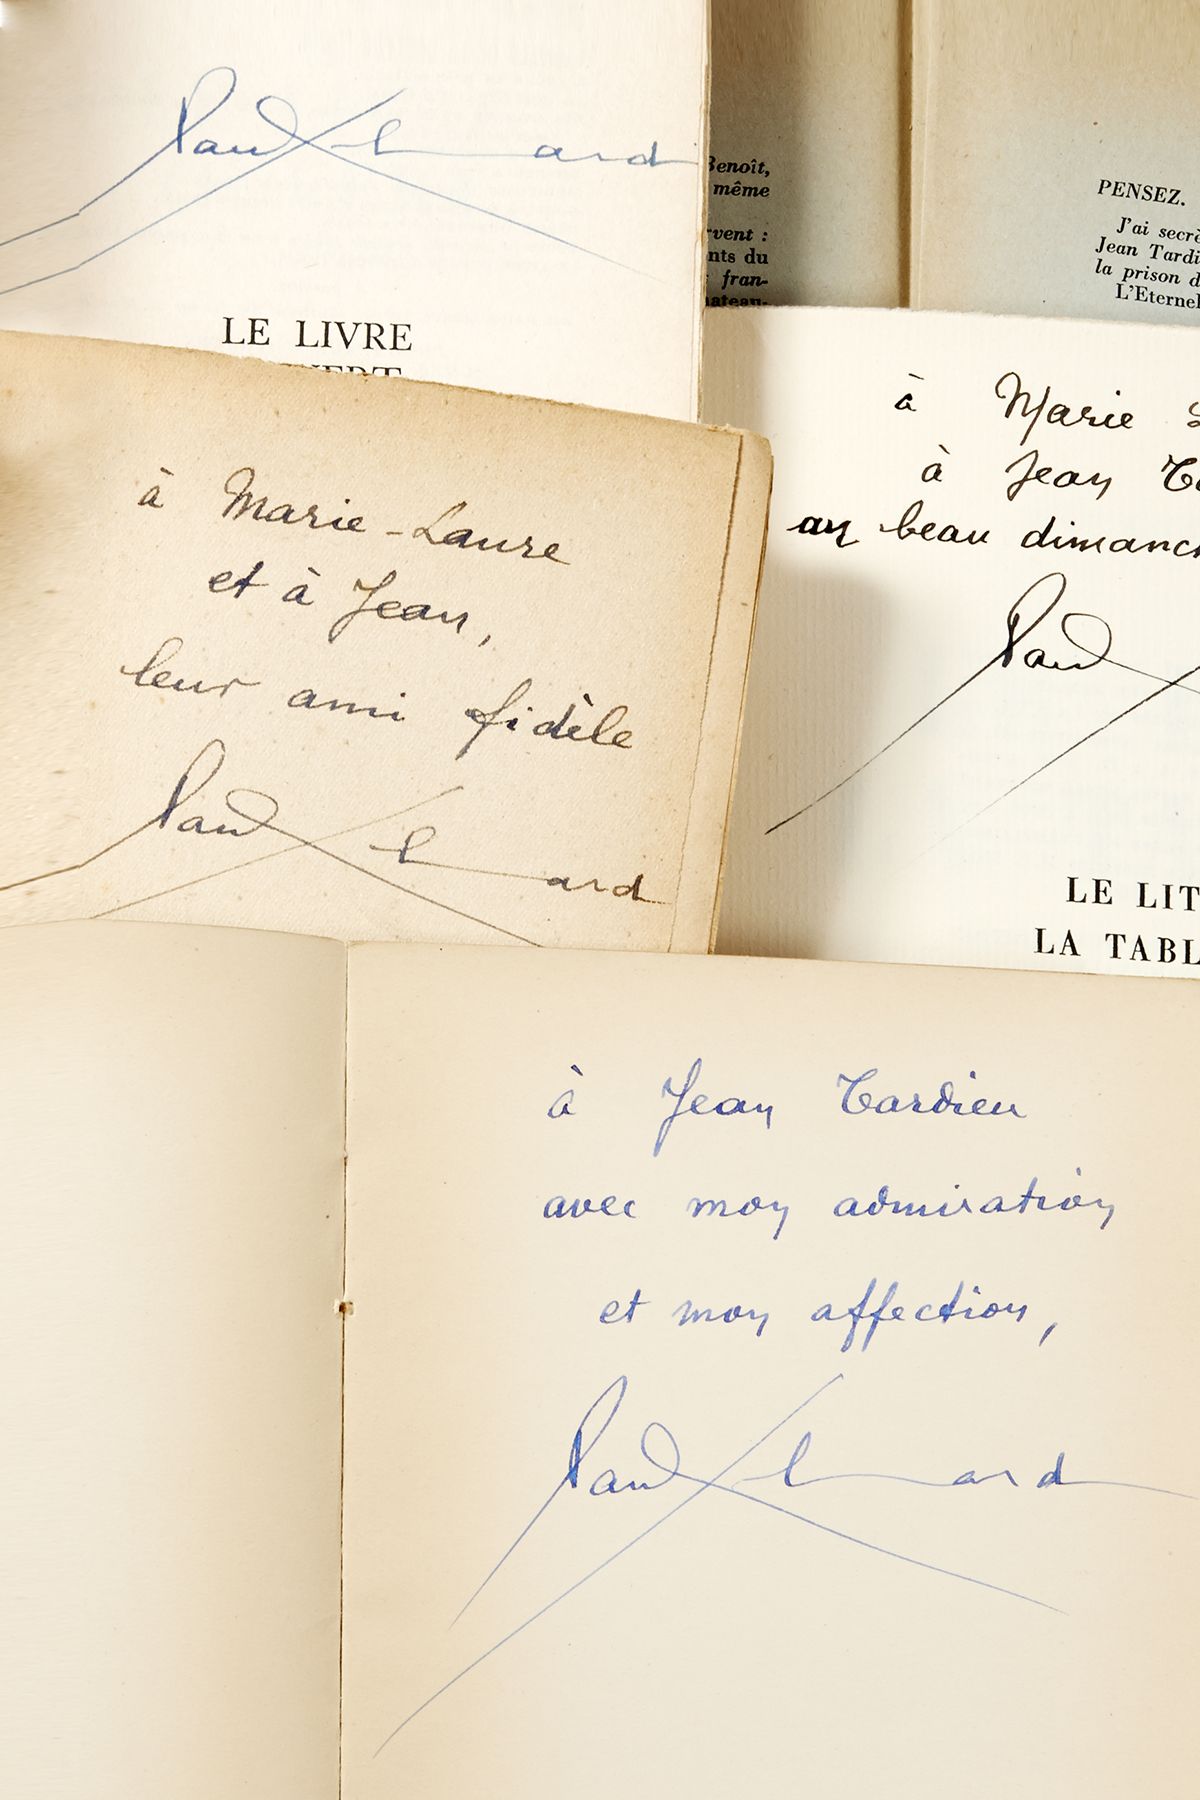 Paul Eluard
LE LIVRE
Benoît,
même
vent :
nts du
fran-
hateau-
PENSEZ.
J'ai secrè
Jean Tardi
la prison d
L'Eternel
à Marie-Laure
et à Jean,
leur ami fidèle
Paul Eluard
à Marie
à Jean
un beau dimanch
Paul
LE LIT
LA TABL
à Jean Tardieu
avec mon admiration
et mon affection,
Paul Eluard